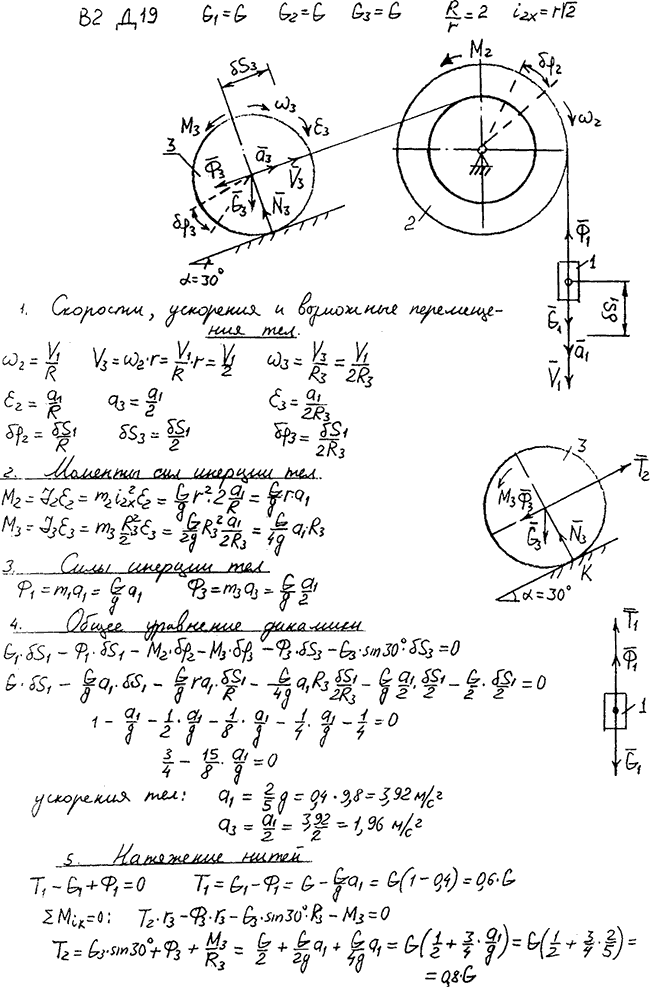 В2 Д19 G₁=G G₂=G G₃=G R/r=2 i₂ₓ=r√2
δS₃
M₂
δφ₂
ω₃
M₃
ε₃
ω₂
3
Φ̄₃
ā₃
V̄₃
Ḡ₃
N̄₃
δφ₃
2
α=30°
Φ̄₁
1
Ḡ₁
δS₁
ā₁
V̄₁
1. Скорости, ускорения и возможные перемеще-
ния тел.
ω₂=V₁/R V₃=ω₂·r=V₁/R·r=V₁/2 ω₃=V₃/R₃=V₁/2R₃
ε₂=a₁/R a₃=a₁/2 ε₃=a₁/2R₃
δφ₂=δS₁/R δS₃=δS₁/2 δφ₃=δS₁/2R₃
2. Моменты сил инерции тел
M₂=J₂ε₂=m₂i₂ₓ²ε₂=G/g r²·2 a₁/R=G/g ra₁
M₃=J₃ε₃=m₃ R₃²/2 ε₃=G/2g R₃² a₁/2R₃=G/4g a₁R₃
3
T̄₂
M₃
Φ̄₃
Ḡ₃
N̄₃
K
α=30°
3. Силы инерции тел
Φ₁=m₁a₁=G/g a₁ Φ₃=m₃a₃=G/g a₁/2
4. Общее уравнение динамики
G₁·δS₁ − Φ₁·δS₁ − M₂·δφ₂ − M₃·δφ₃ − Φ₃·δS₃ − G₃·sin30°·δS₃=0
G·δS₁ − G/g a₁·δS₁ − G/g ra₁·δS₁/R − G/4g a₁R₃ δS₁/2R₃ − G/g a₁/2·δS₁/2 − G/2·δS₁/2=0
1 − a₁/g − 1/2·a₁/g − 1/8·a₁/g − 1/4·a₁/g − 1/4=0
3/4 − 15/8·a₁/g=0
T̄₁
Φ̄₁
1
Ḡ₁
ускорения тел: a₁=2/5 g=0,4·9,8=3,92 м/с²
a₃=a₁/2=3,92/2=1,96 м/с²
5. Натяжение нитей
T₁−G₁+Φ₁=0 T₁=G₁−Φ₁=G−G/g a₁=G(1−0,4)=0,6·G
ΣMᵢₖ=0: T₂·r₃−Φ₃·r₃−G₃·sin30°·R₃−M₃=0
T₂=G₃·sin30°+Φ₃+M₃/R₃=G/2+G/2g a₁+G/4g a₁=G(1/2+3/4·a₁/g)=G(1/2+3/4·2/5)=
=0,8·G